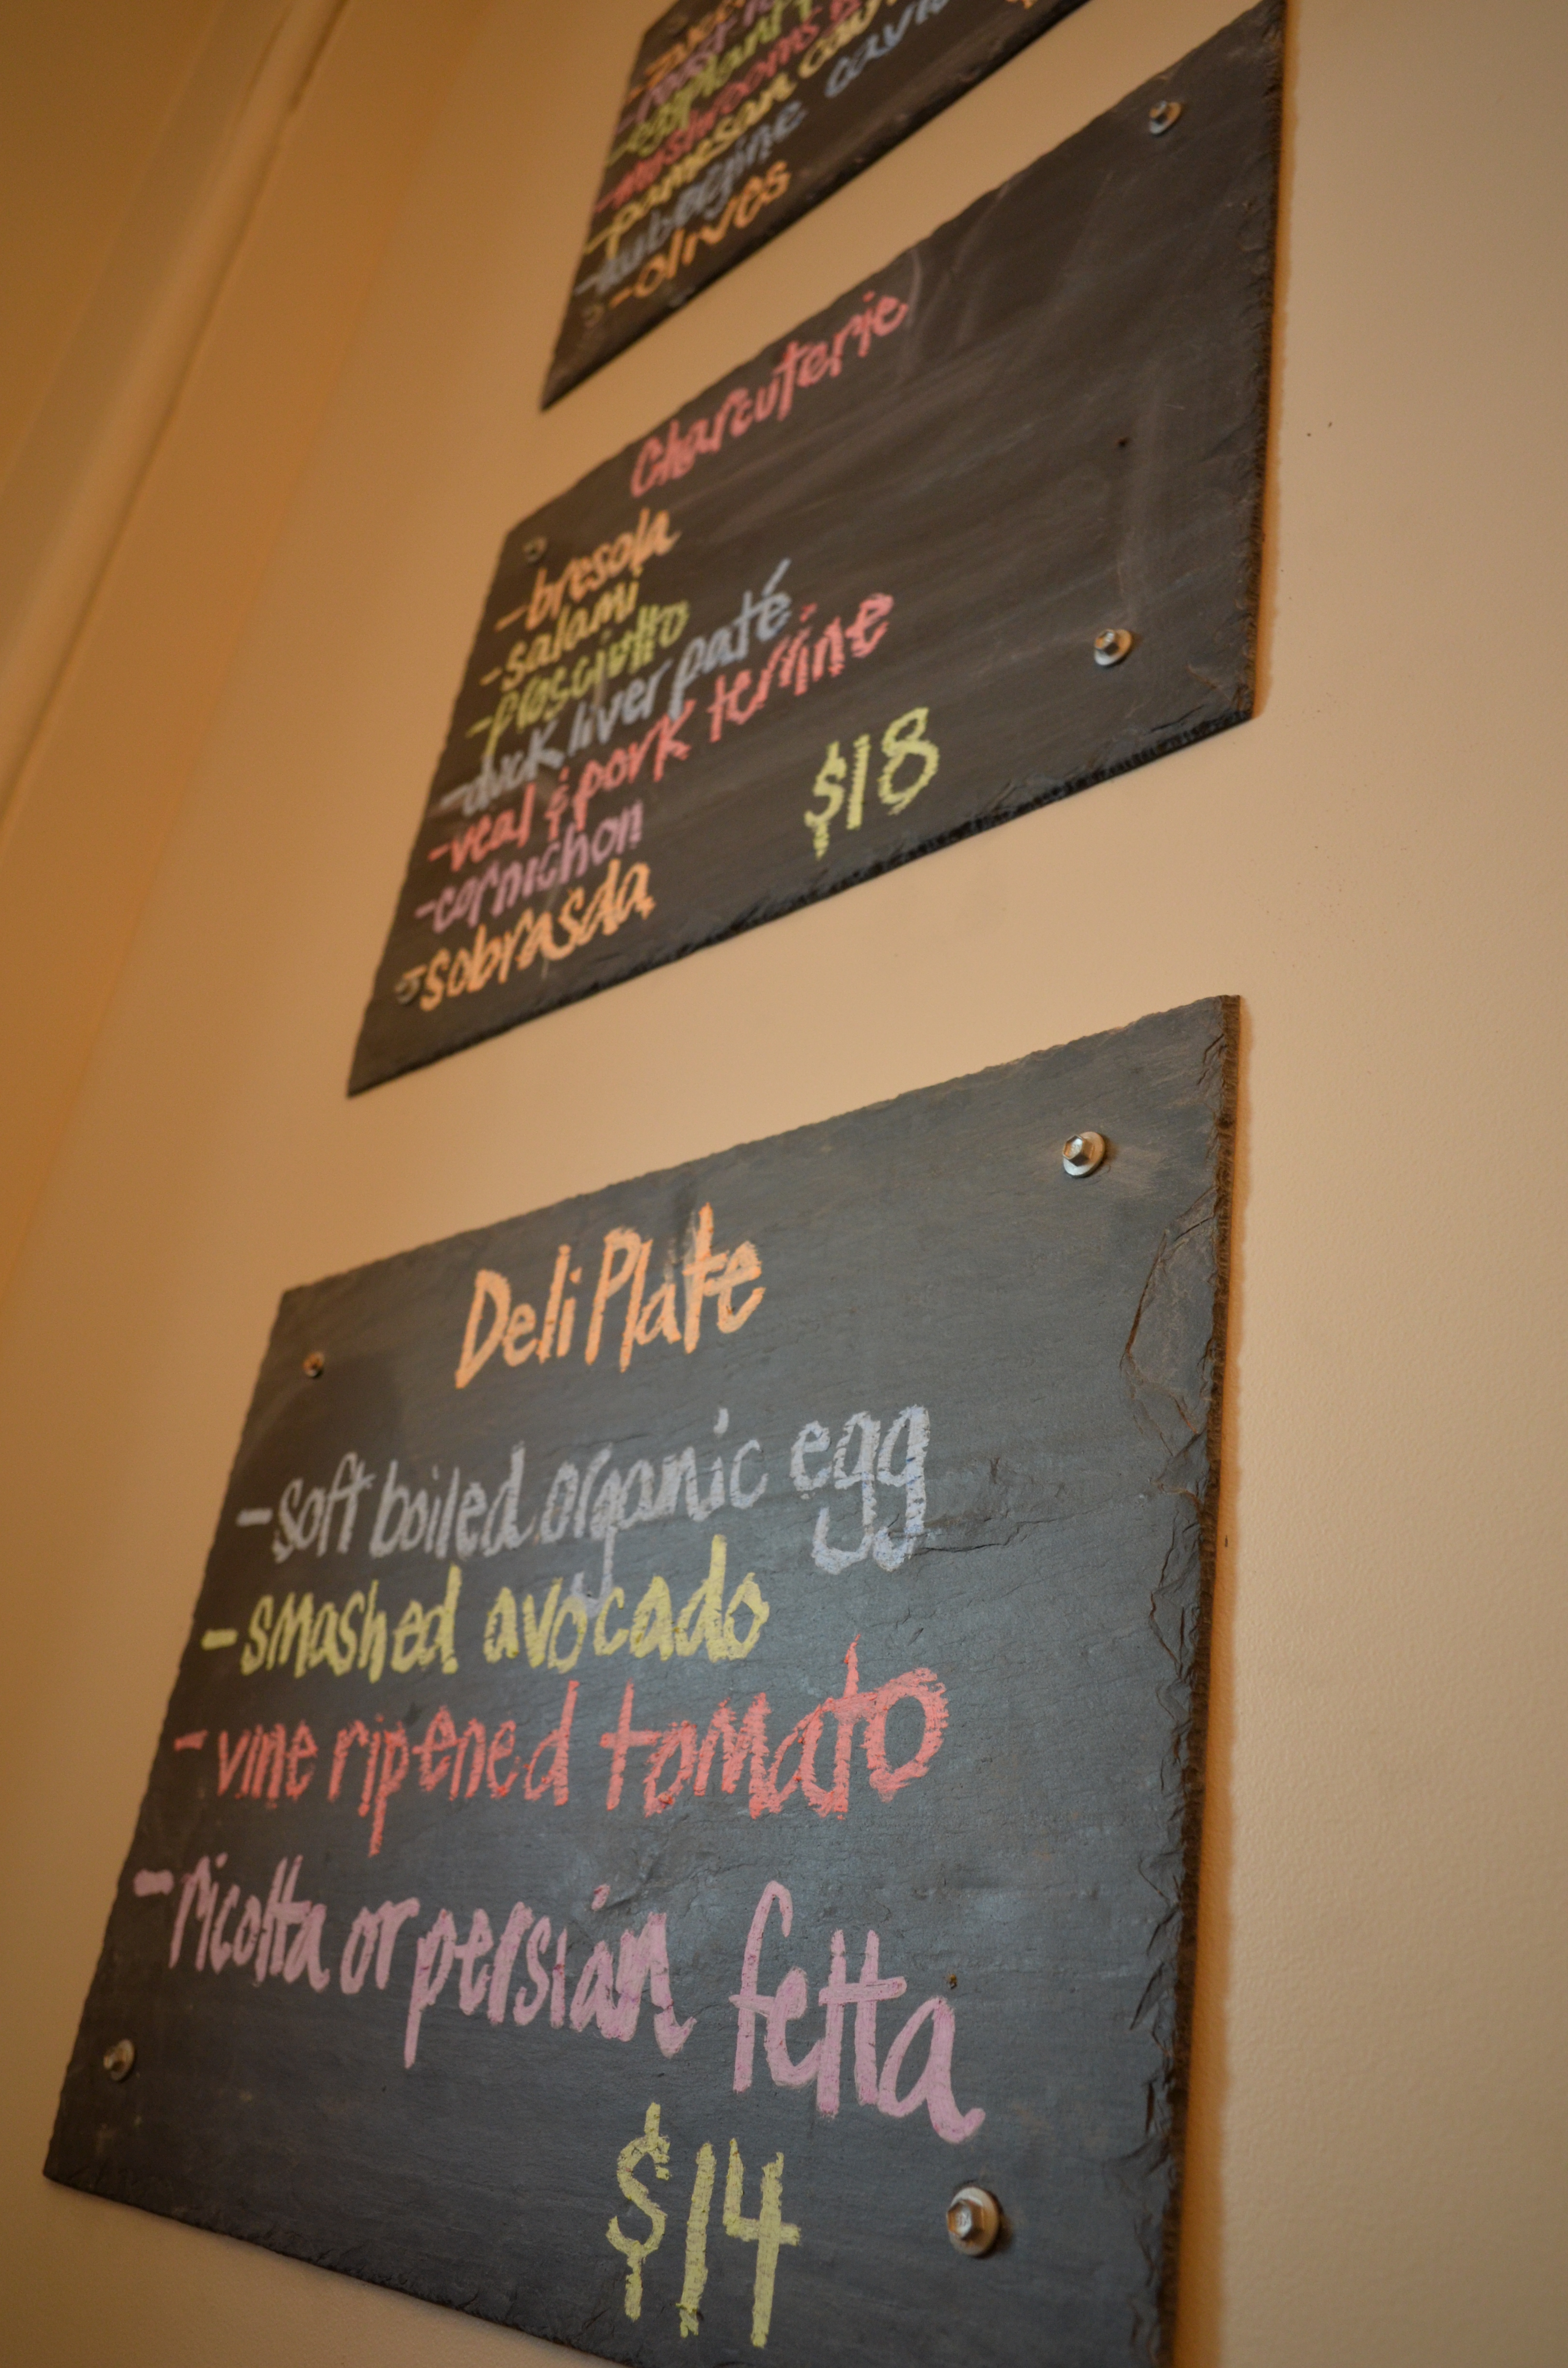 eggplant
-mushrooms
-parmesan
-aubergine
-olives
Charcuterie
-bresola
-salami
-prosciutto
-duck liver paté
-veal & pork terrine
-cornichon
-sobrasda
$18
Deli Plate
-soft boiled organic egg
-smashed avocado
-vine ripened tomato
-ricotta or persian fetta
$14